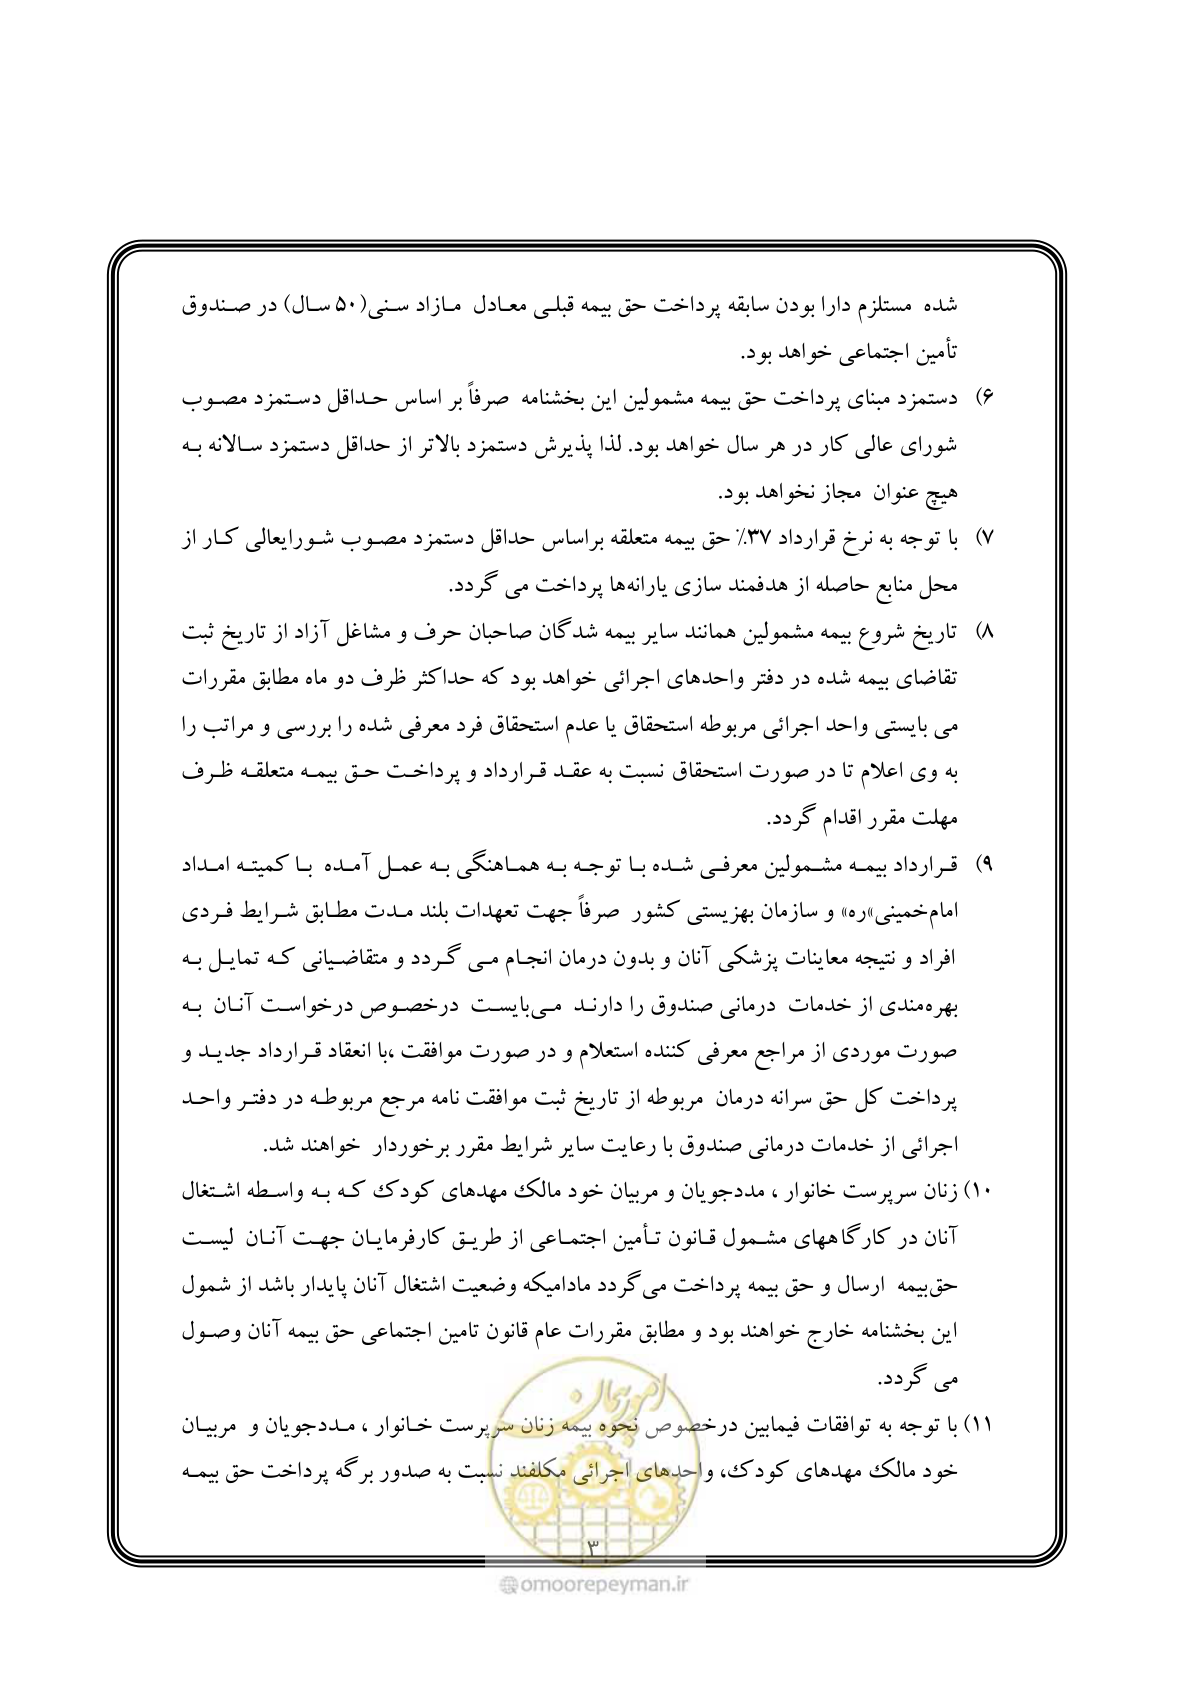 شده مستلزم دارا بودن سابقه پرداخت حق بیمه قبلی معادل مازاد سنی(۵۰ سال) در صندوق
تأمین اجتماعی خواهد بود.
۶) دستمزد مبنای پرداخت حق بیمه مشمولین این بخشنامه صرفاً بر اساس حداقل دستمزد مصوب
شورای عالی کار در هر سال خواهد بود. لذا پذیرش دستمزد بالاتر از حداقل دستمزد سالانه به
هیچ عنوان مجاز نخواهد بود.
۷) با توجه به نرخ قرارداد ۳۷٪ حق بیمه متعلقه براساس حداقل دستمزد مصوب شورایعالی کار از
محل منابع حاصله از هدفمند سازی یارانه‌ها پرداخت می گردد.
۸) تاریخ شروع بیمه مشمولین همانند سایر بیمه شدگان صاحبان حرف و مشاغل آزاد از تاریخ ثبت
تقاضای بیمه شده در دفتر واحدهای اجرائی خواهد بود که حداکثر ظرف دو ماه مطابق مقررات
می بایستی واحد اجرائی مربوطه استحقاق یا عدم استحقاق فرد معرفی شده را بررسی و مراتب را
به وی اعلام تا در صورت استحقاق نسبت به عقد قرارداد و پرداخت حق بیمه متعلقه ظرف
مهلت مقرر اقدام گردد.
۹) قرارداد بیمه مشمولین معرفی شده با توجه به هماهنگی به عمل آمده با کمیته امداد
امام‌خمینی«ره» و سازمان بهزیستی کشور صرفاً جهت تعهدات بلند مدت مطابق شرایط فردی
افراد و نتیجه معاینات پزشکی آنان و بدون درمان انجام می گردد و متقاضیانی که تمایل به
بهره‌مندی از خدمات درمانی صندوق را دارند می‌بایست درخصوص درخواست آنان به
صورت موردی از مراجع معرفی کننده استعلام و در صورت موافقت ،با انعقاد قرارداد جدید و
پرداخت کل حق سرانه درمان مربوطه از تاریخ ثبت موافقت نامه مرجع مربوطه در دفتر واحد
اجرائی از خدمات درمانی صندوق با رعایت سایر شرایط مقرر برخوردار خواهند شد.
۱۰) زنان سرپرست خانوار ، مددجویان و مربیان خود مالک مهدهای کودک که به واسطه اشتغال
آنان در کارگاههای مشمول قانون تأمین اجتماعی از طریق کارفرمایان جهت آنان لیست
حق‌بیمه ارسال و حق بیمه پرداخت می‌گردد مادامیکه وضعیت اشتغال آنان پایدار باشد از شمول
این بخشنامه خارج خواهند بود و مطابق مقررات عام قانون تامین اجتماعی حق بیمه آنان وصول
می گردد.
۱۱) با توجه به توافقات فیمابین درخصوص نحوه بیمه زنان سرپرست خانوار ، مددجویان و مربیان
خود مالک مهدهای کودک، واحدهای اجرائی مکلفند نسبت به صدور برگه پرداخت حق بیمه
امور پیمان
۳
@omoorepeyman.ir